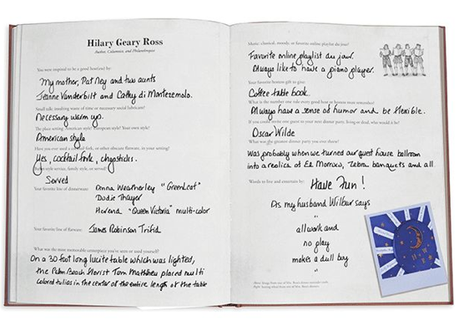 Hilary Geary Ross
Author, Columnist, and Philanthropist
You were inspired to be a good host(ess) by:
My mother, Pat Ney and two aunts
Jeanne Vanderbilt and Cathy di Montezemolo.
Small talk: tending waste of time or necessary social lubricant?
Necessary warm up.
The place setting: American style? European style? Your own style?
American style
Have you ever used a
fork, or other obscure flatware, in your setting?
Yes, cocktail fork, chopsticks.
style service, family style, or served?
Served
Your favorite line of dinnerware:
Anna Weatherley "Green Leaf"
Dodie Thayer
Herend "Queen Victoria" multi-color
Your favorite line of flatware:
James Robinson Trifid
What was the most memorable centerpiece you've seen or used yourself?
On a 30 foot long lucite table which was lighted,
the Palm Beach florist Tom Mathieu placed multi
colored tulips in the center of the entire length of the table
or favorite online playlist du jour?
Favorite online playlist du jour.
Always like to have a piano player.
Your favorite hostess gift to give:
Coffee table book.
What is the number one rule every good host or hostess must remember?
Always have a sense of humor and be flexible.
If you could invite one guest to your next dinner party, living or dead, who would it be?
Oscar Wilde
What was the greatest dinner party you ever threw?
Was probably when we turned our guest house ballroom
into a replica of El Morocco, zebra banquets and all
Words to live and entertain by:
Have fun!
As my husband Wilbur says
"
all work and
no play
makes a dull boy
"